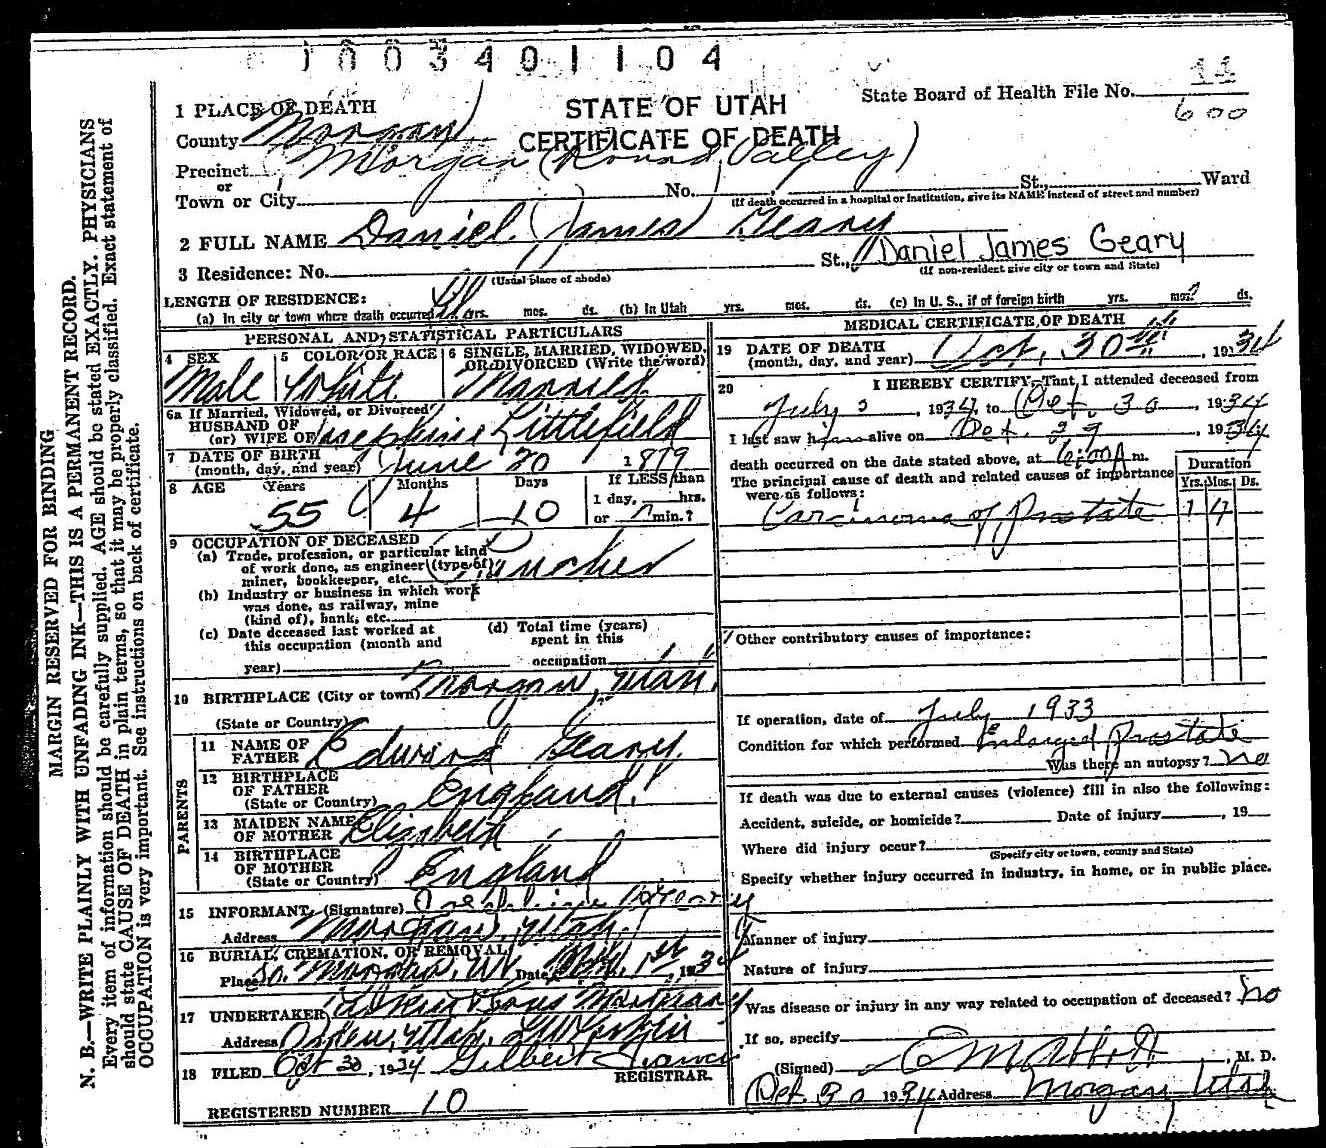 1003401104
11
State Board of Health File No.
600
STATE OF UTAH
CERTIFICATE OF DEATH
1 PLACE OF DEATH
County Morgan
Precinct Morgan (Round Valley)
or
Town or City No. St., Ward
(If death occurred in a hospital or institution, give its NAME instead of street and number)
2 FULL NAME Daniel James Geary
Daniel James Geary
3 Residence: No. St.,
(Usual place of abode) (If non-resident give city or town and State)
LENGTH OF RESIDENCE:
(a) In city or town where death occurred yrs. mos. ds. (b) In Utah yrs. mos. ds. (c) In U. S., if of foreign birth yrs. mos? ds.
PERSONAL AND STATISTICAL PARTICULARS
4 SEX Male
5 COLOR OR RACE White
6 SINGLE, MARRIED, WIDOWED, OR DIVORCED (Write the word) Married
6a If Married, Widowed, or Divorced
HUSBAND OF
(or) WIFE OF Josephine Littlefield
7 DATE OF BIRTH
(month, day, and year) June 20 1879
8 AGE Years Months Days If LESS than
1 day, hrs.
or min.?
55 4 10
9 OCCUPATION OF DECEASED
(a) Trade, profession, or particular kind
of work done, as engineer (type of)
miner, bookkeeper, etc. Rancher
(b) Industry or business in which work
was done, as railway, mine
(kind of), bank, etc.
(c) Date deceased last worked at
this occupation (month and
year)
(d) Total time (years)
spent in this
occupation
10 BIRTHPLACE (City or town) Morgan, Utah.
(State or Country)
PARENTS
11 NAME OF
FATHER Edward Geary
12 BIRTHPLACE
OF FATHER
(State or Country) England
13 MAIDEN NAME
OF MOTHER Elizabeth
14 BIRTHPLACE
OF MOTHER
(State or Country) England
15 INFORMANT (Signature) Josephine Geary
Address Morgan, Utah
16 BURIAL, CREMATION, OR REMOVAL
Place So. Morgan, Ut Date Nov. 1st, 1934
17 UNDERTAKER Sons Mortuary
Address Ogden, Utah,
18 FILED Oct 30, 1934 Gilbert Francis
REGISTRAR.
REGISTERED NUMBER 10
MEDICAL CERTIFICATE OF DEATH
19 DATE OF DEATH
(month, day, and year) Oct, 30th, 1934
20 I HEREBY CERTIFY, That I attended deceased from
July 3, 1934, to Oct. 30, 1934
I last saw him alive on Oct. 29, 1934
death occurred on the date stated above, at 6:00 A m.
The principal cause of death and related causes of importance
were as follows:
Duration
Yrs. Mos. Ds.
Carcinoma of Prostate 1 4
Other contributory causes of importance:
If operation, date of July 1933
Condition for which performed Enlarged Prostate
Was there an autopsy? no
If death was due to external causes (violence) fill in also the following:
Accident, suicide, or homicide? Date of injury , 19
Where did injury occur?
(Specify city or town, county and State)
Specify whether injury occurred in industry, in home, or in public place.
Manner of injury
Nature of injury
Was disease or injury in any way related to occupation of deceased? No
If so, specify
(Signed) E M Abbott, M. D.
Oct. 30 1934 Address Morgan Utah
MARGIN RESERVED FOR BINDING
N. B.—WRITE PLAINLY WITH UNFADING INK—THIS IS A PERMANENT RECORD.
Every item of information should be carefully supplied. AGE should be stated EXACTLY. PHYSICIANS
should state CAUSE OF DEATH in plain terms, so that it may be properly classified. Exact statement of
OCCUPATION is very important. See instructions on back of certificate.